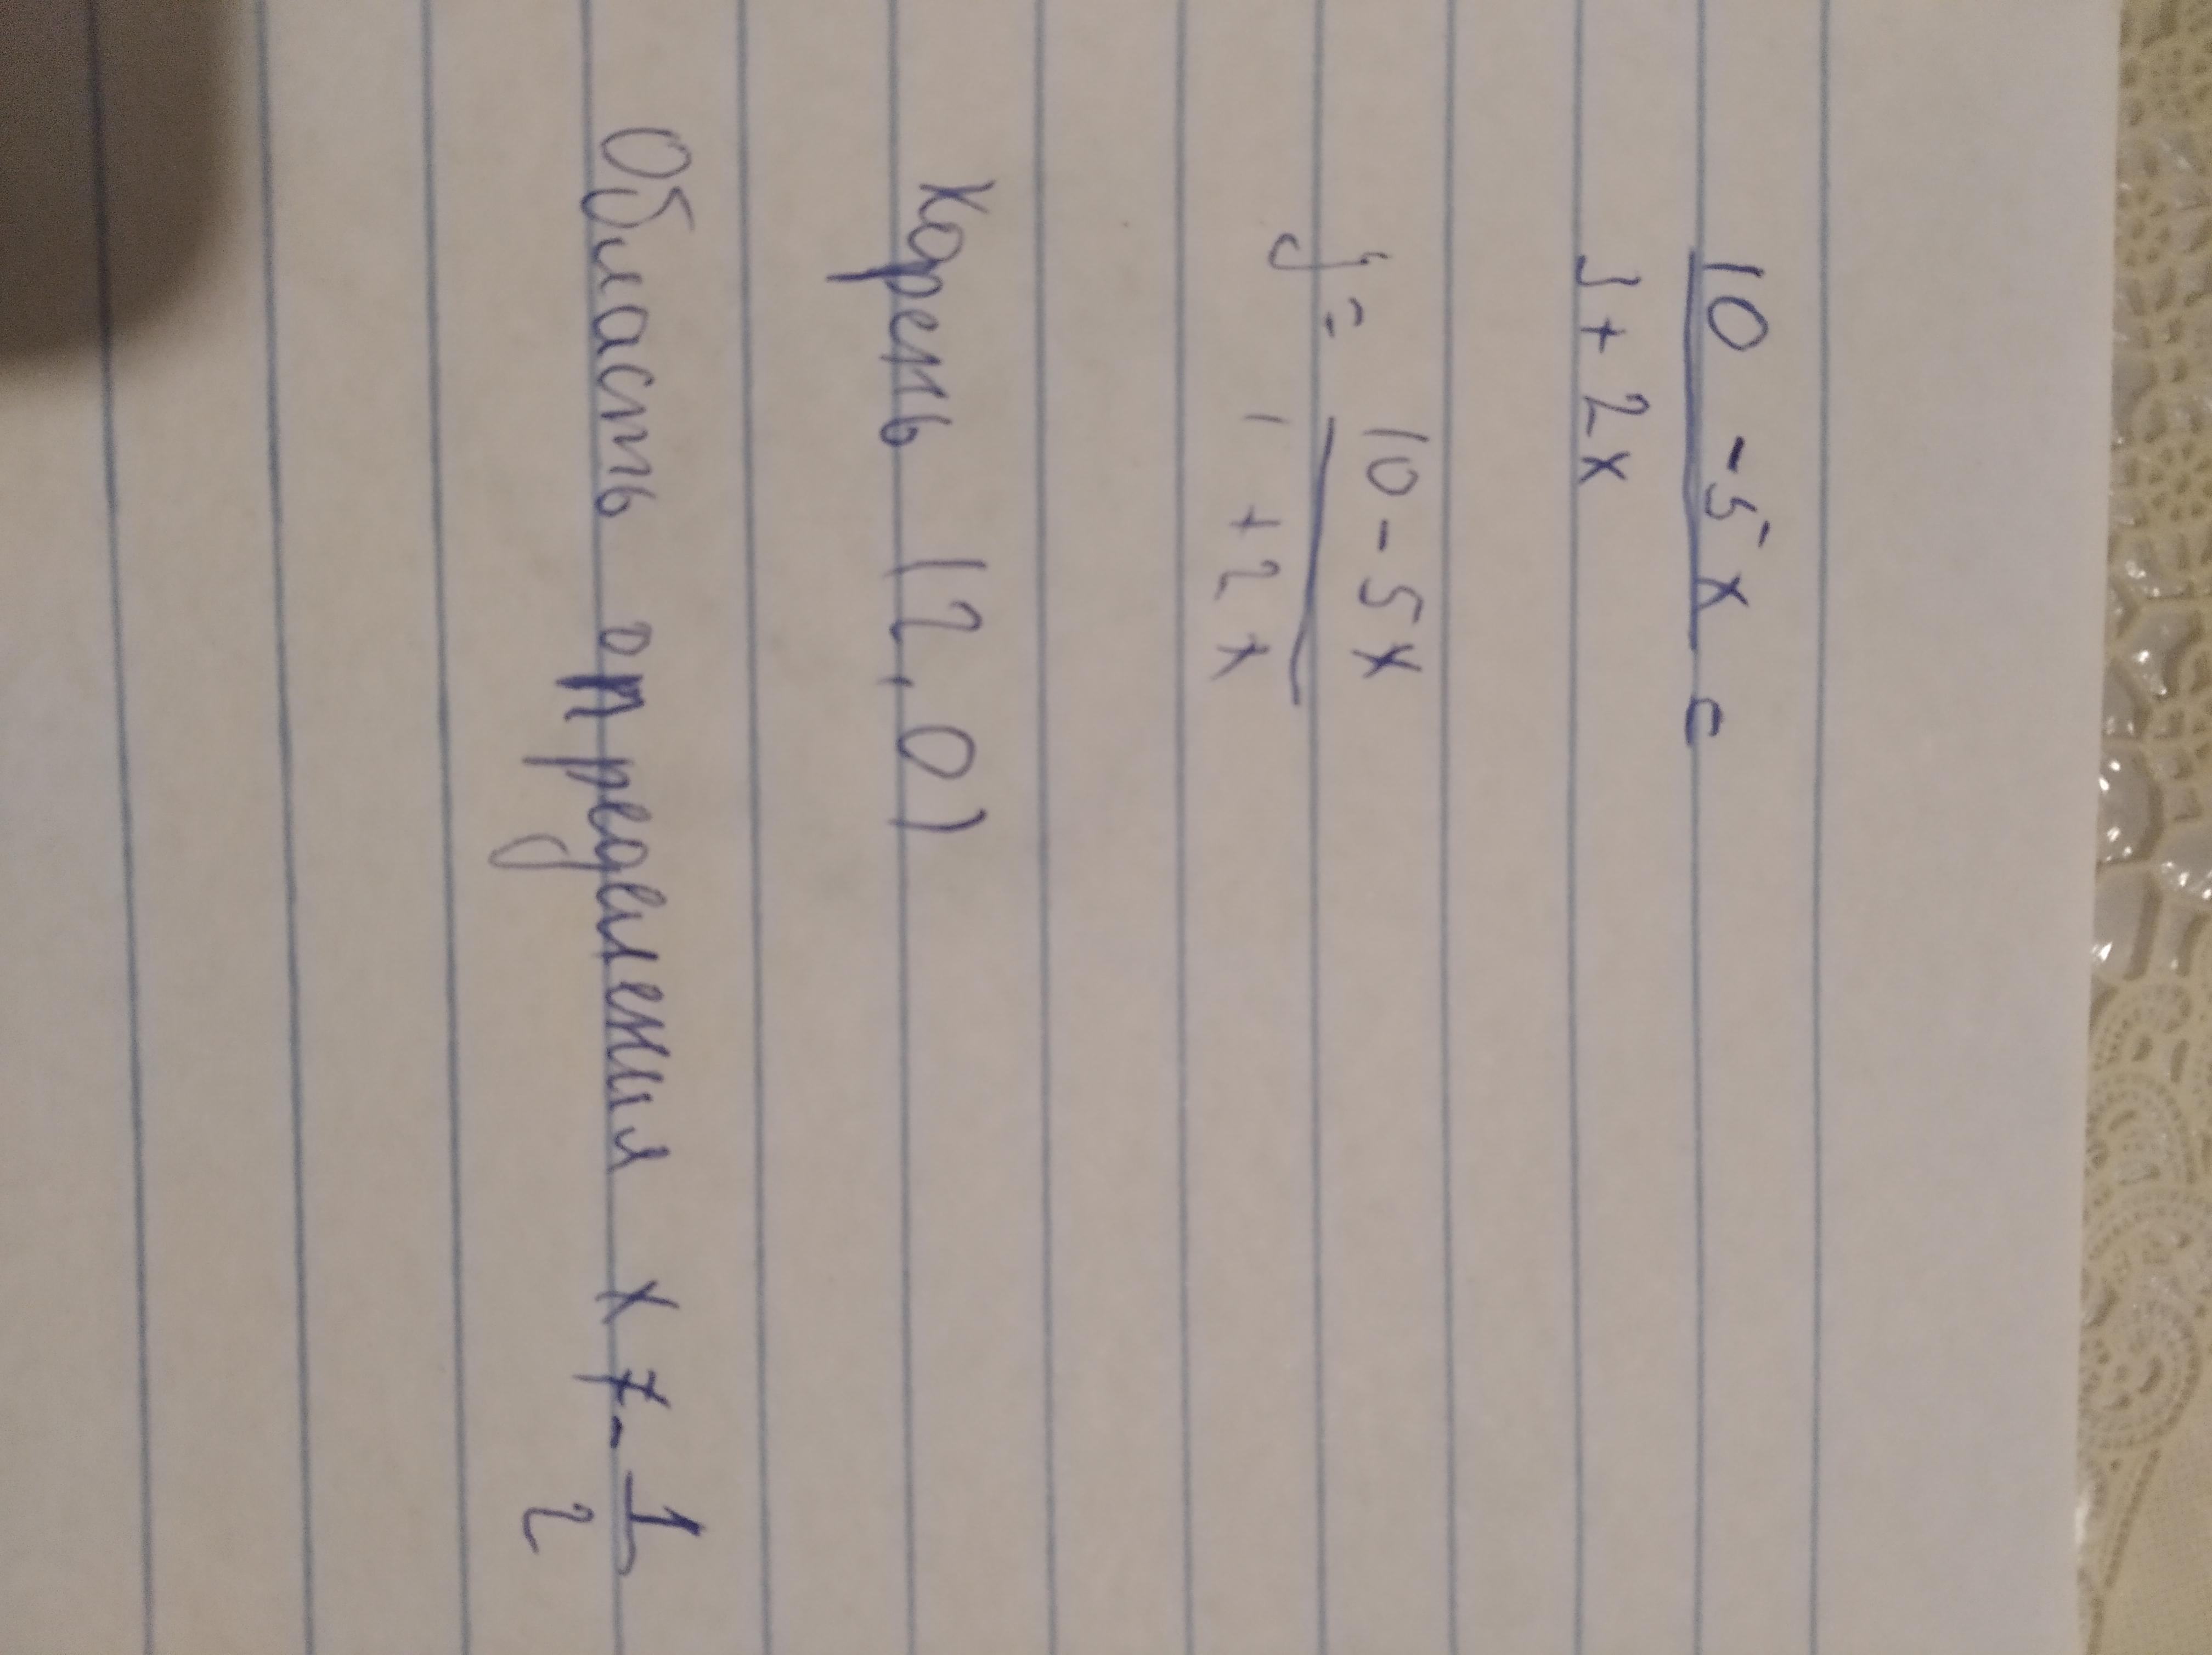 10 - 5x =
1 + 2x
y = 10 - 5x
1 + 2x
корень (2,0)
Область определения x ≠ - 1
2